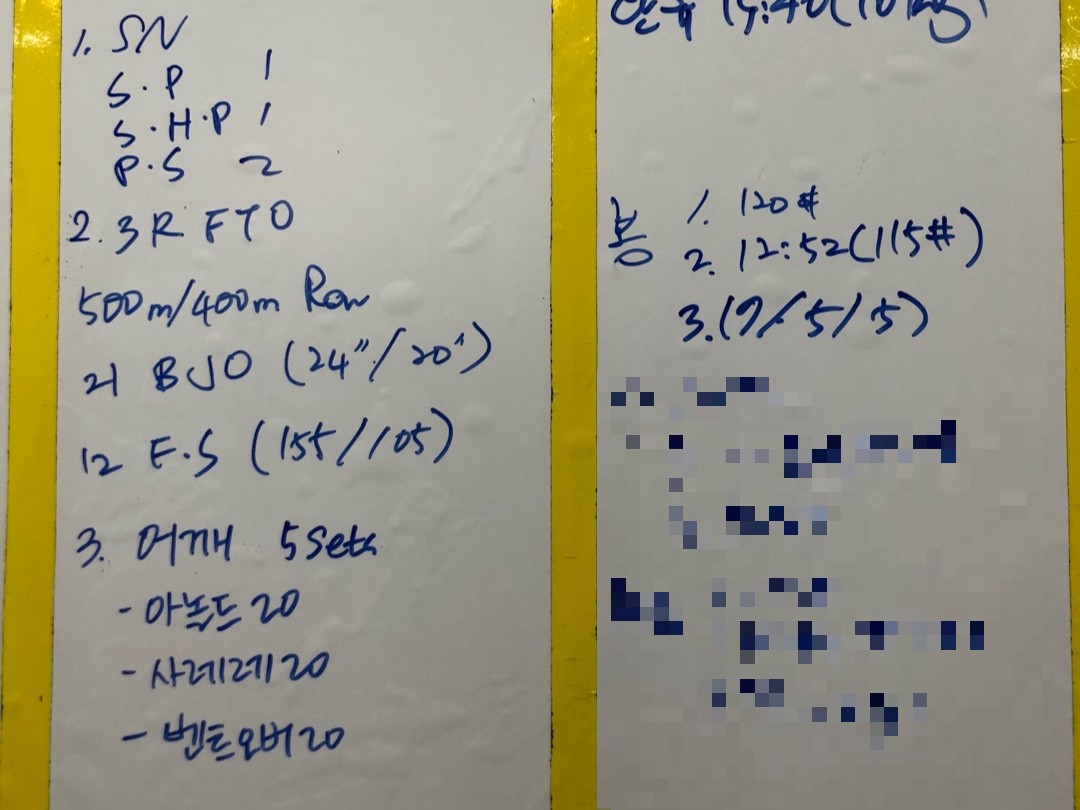 1. SN
S.P 1
S.H.P 1
P.S 2
2. 3R FTO
500m/400m Row
21 BJO (24"/20")
12 F.S (155/105)
3. 어깨 5 Sets
- 아놀드 20
- 사레레 20
- 벤트오버 20
봉 1. 120#
2. 12:52(115#)
3. (7/5/5)